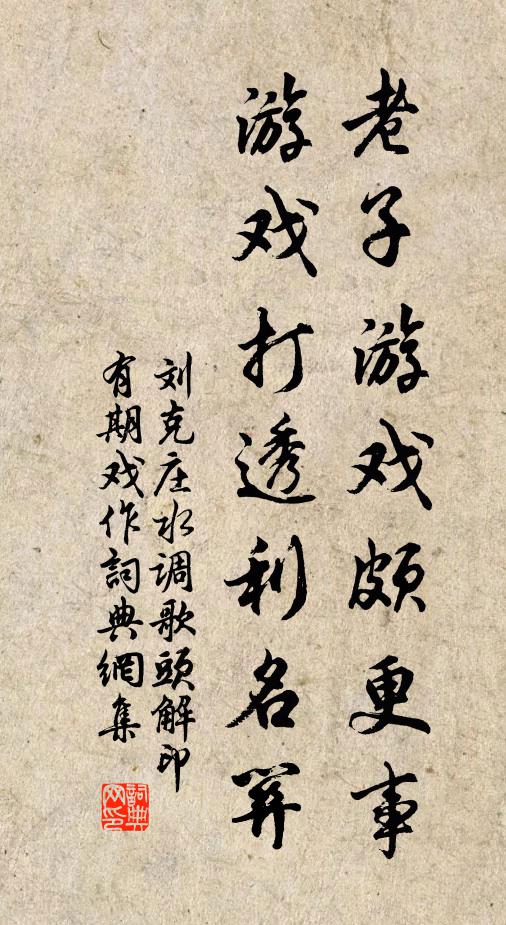 老子游戏颇更事
游戏打透利名关
刘克庄水调歌頭解印
有期戏作詞典網集
詞典
网印